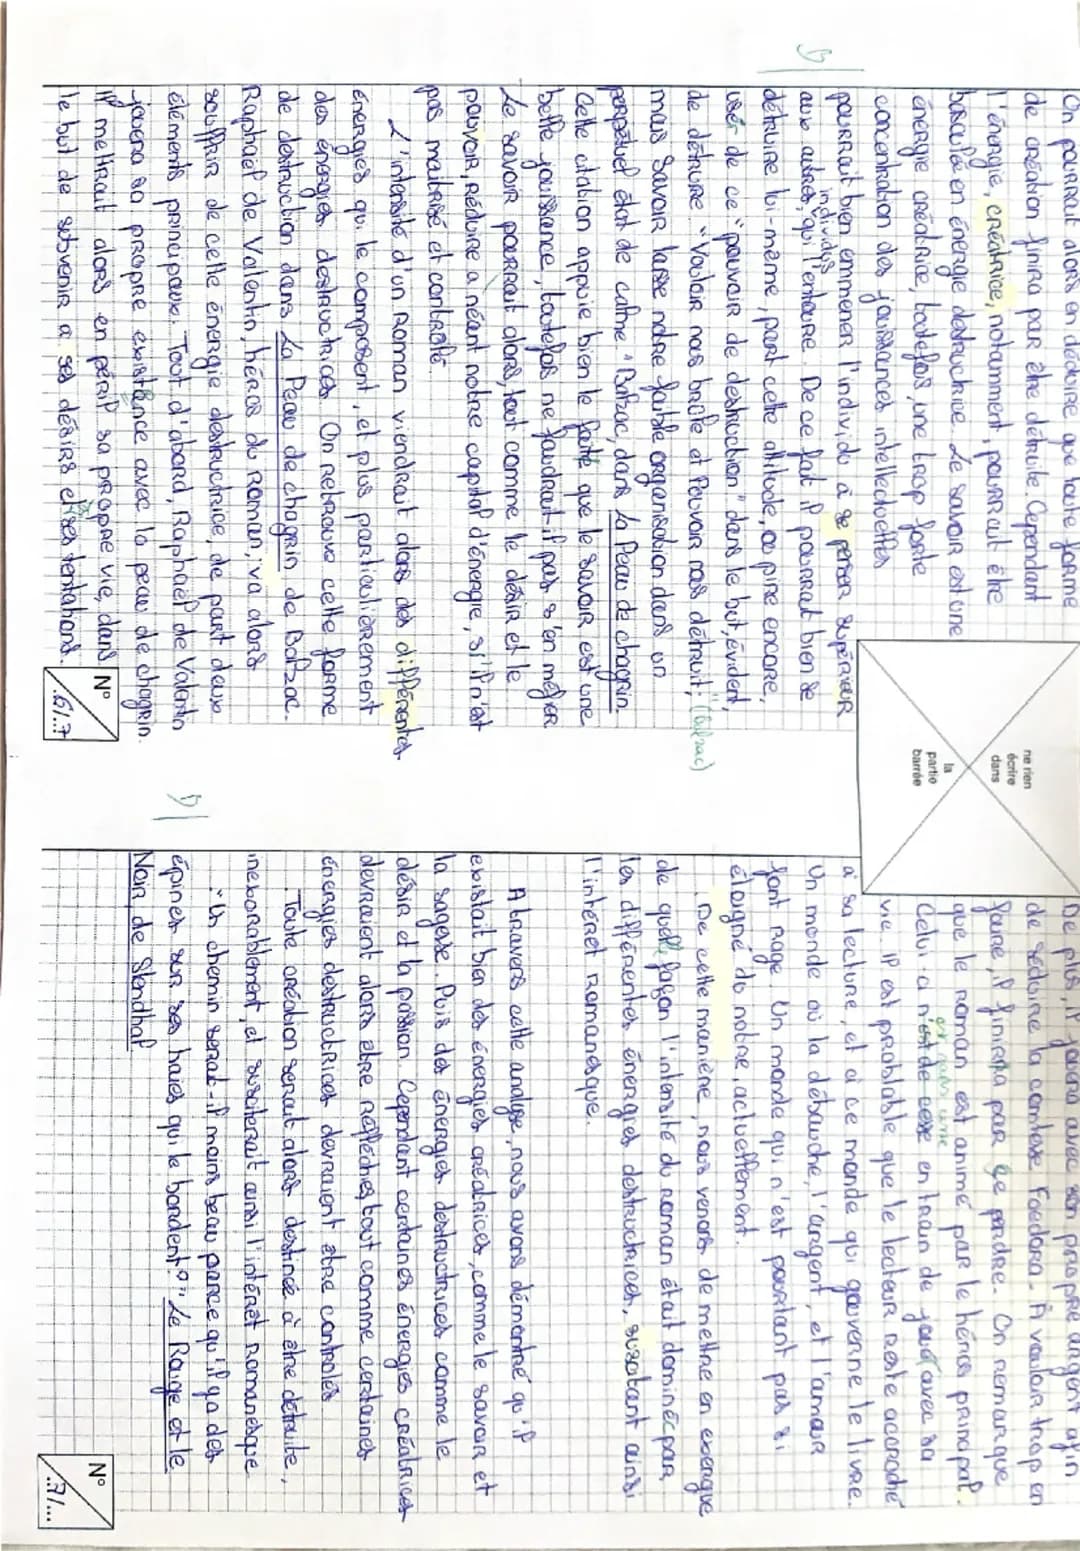 On pourrait alors en déduire que toute forme
de création finira par être détruite. Cependant
l'énergie, créatrice, notamment, pourrait être
basculée en énergie destructrice. Le savoir est une
énergie créatrice, toutefois, une trop forte
concentration des jouissances intellectuelles
pourrait bien emmener l'individu à se penser supérieur
aux autres individus qui l'entoure. De ce fait il pourrait bien se
détruire lui-même, part cette attitude, ou pire encore,
user de ce "pouvoir de destruction" dans le but, évident,
de détruire. "Vouloir nous brûle et Pouvoir nous détruit; (Balzac)
mais Savoir laisse notre faible organisation dans un
perpétuel état de calme" Balzac, dans La Peau de chagrin.
Cette citation appuie bien le faite que le savoir est une
belle jouissance, toutefois ne faudrait-il pas s'en méfier
Le savoir pourrait alors, tout comme le désir et le
pouvoir, réduire a néant notre capital d'énergie, si il n'est
pas maitrisé et contrôlé.
L'intensité d'un roman viendrait alors des différentes
énergies qui le composent, et plus particulièrement
des énergies destructrices. On retrouve cette forme
de destruction dans La Peau de chagrin de Balzac.
Raphaël de Valentin, héros du roman, va alors
souffrir de celle énergie destructrice, de part deux
éléments principaux. Tout d'abord, Raphaël de Valentin
jouera sa propre existence avec la peau de chagrin.
Il mettrait alors en péril sa propre vie, dans
le but de subvenir a ses désirs et ses tentations.
N°
.6/.7
ne rien
écrire
dans
la
partie
barrée
De plus, il jouera avec son propre argent afin
de séduire la comtesse Foedora. A vouloir trop en
faire, il finira par se perdre. On remarque
que le roman est animé par le héros principal.
Celui-ci n'est de cesse en train de jouer avec sa
vie. Il est problable que le lecteur reste accroché
à sa lecture, et à ce monde qui gouverne le livre.
Un monde où la débauche, l'argent, et l'amour
font rage. Un monde qui n'est pourtant pas si
éloigné du notre, actuellement.
De cette manière, nous venons de mettre en exergue
de quelle façon l'intensité du roman était dominée par
les différentes énergies destructrices, suscitant ainsi
l'intêret romanesque.
A travers cette analyse, nous avons démontré qu'il
existait bien des énergies créatrices, comme le savoir et
la sagesse. Puis des énergies destructrices comme le
désir et la passion. Cependant certaines énergies créatrices
devraient alors etre réfléchies, tout comme certaines
énergies destructrices devraient etre controlés.
Toute création serait alors destinée à être détruite,
inexorablement, et susciterait ainsi l'intérêt romanesque
"Un chemin serait-il moins beau parce qu'il y a des
épines sur ses haies qui le bordent?" Le Rouge et le
Noir de Stendhal
N°
.7/...